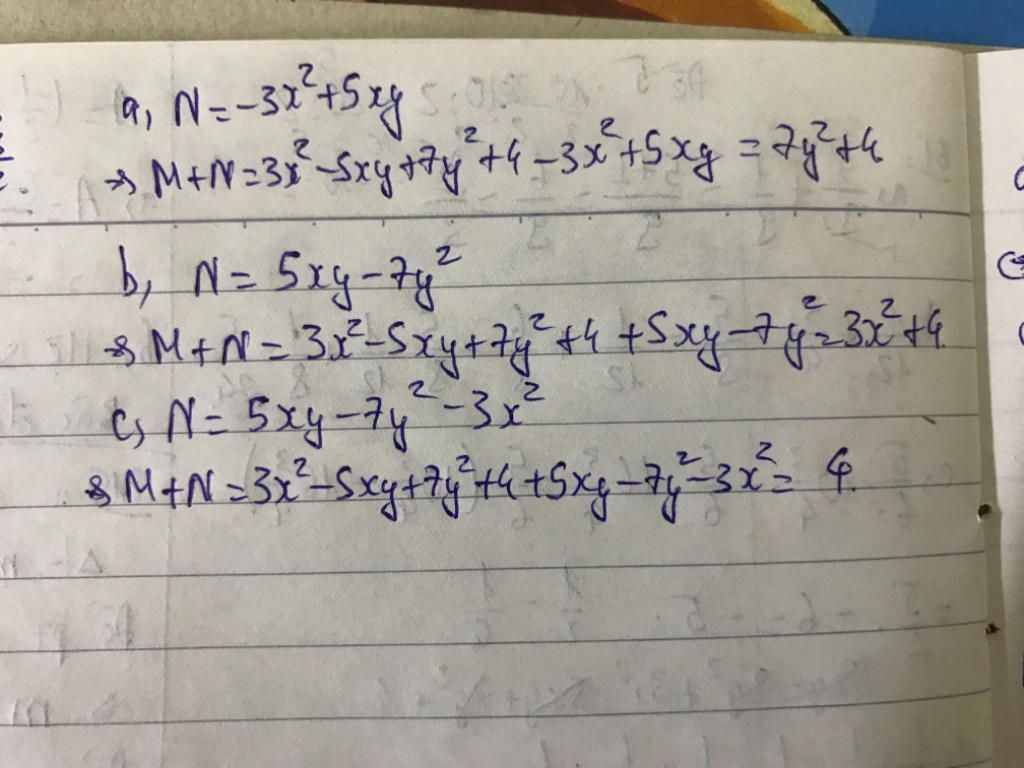 a, N=-3x²+5xy
=> M+N=3x²-5xy+7y²+4-3x²+5xy=7y²+4
b, N=5xy-7y²
=> M+N=3x²-5xy+7y²+4+5xy-7y²=3x²+4.
c, N=5xy-7y²-3x²
=> M+N=3x²-5xy+7y²+4+5xy-7y²-3x²=4.